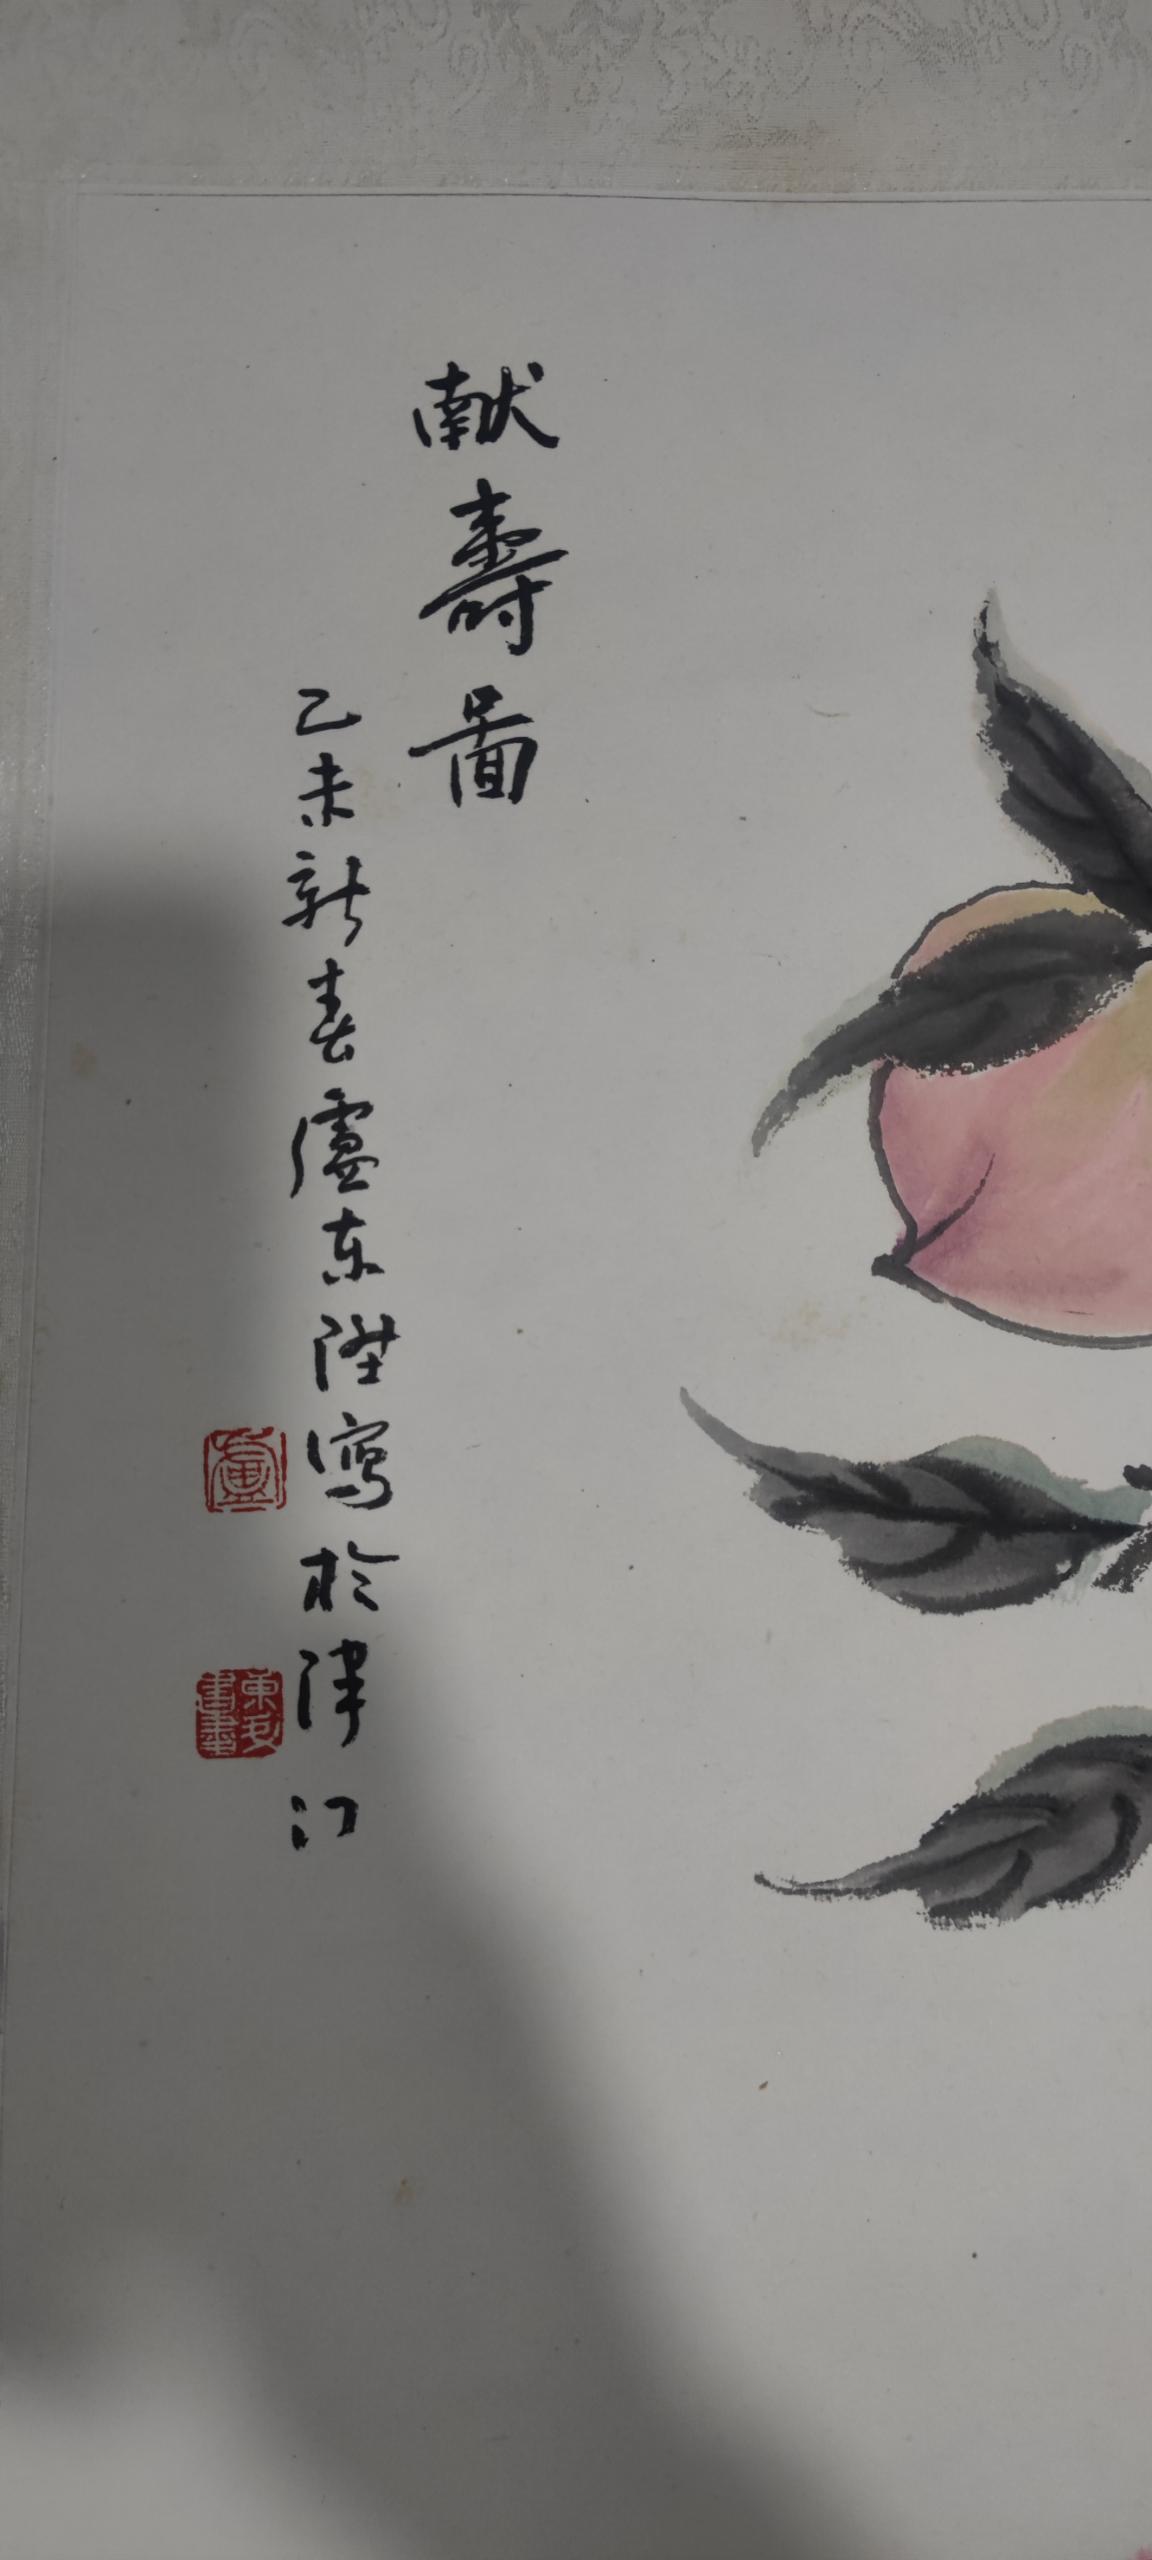 献壽圖
乙未新春盧东陞寫於津门
盧
東安書畫